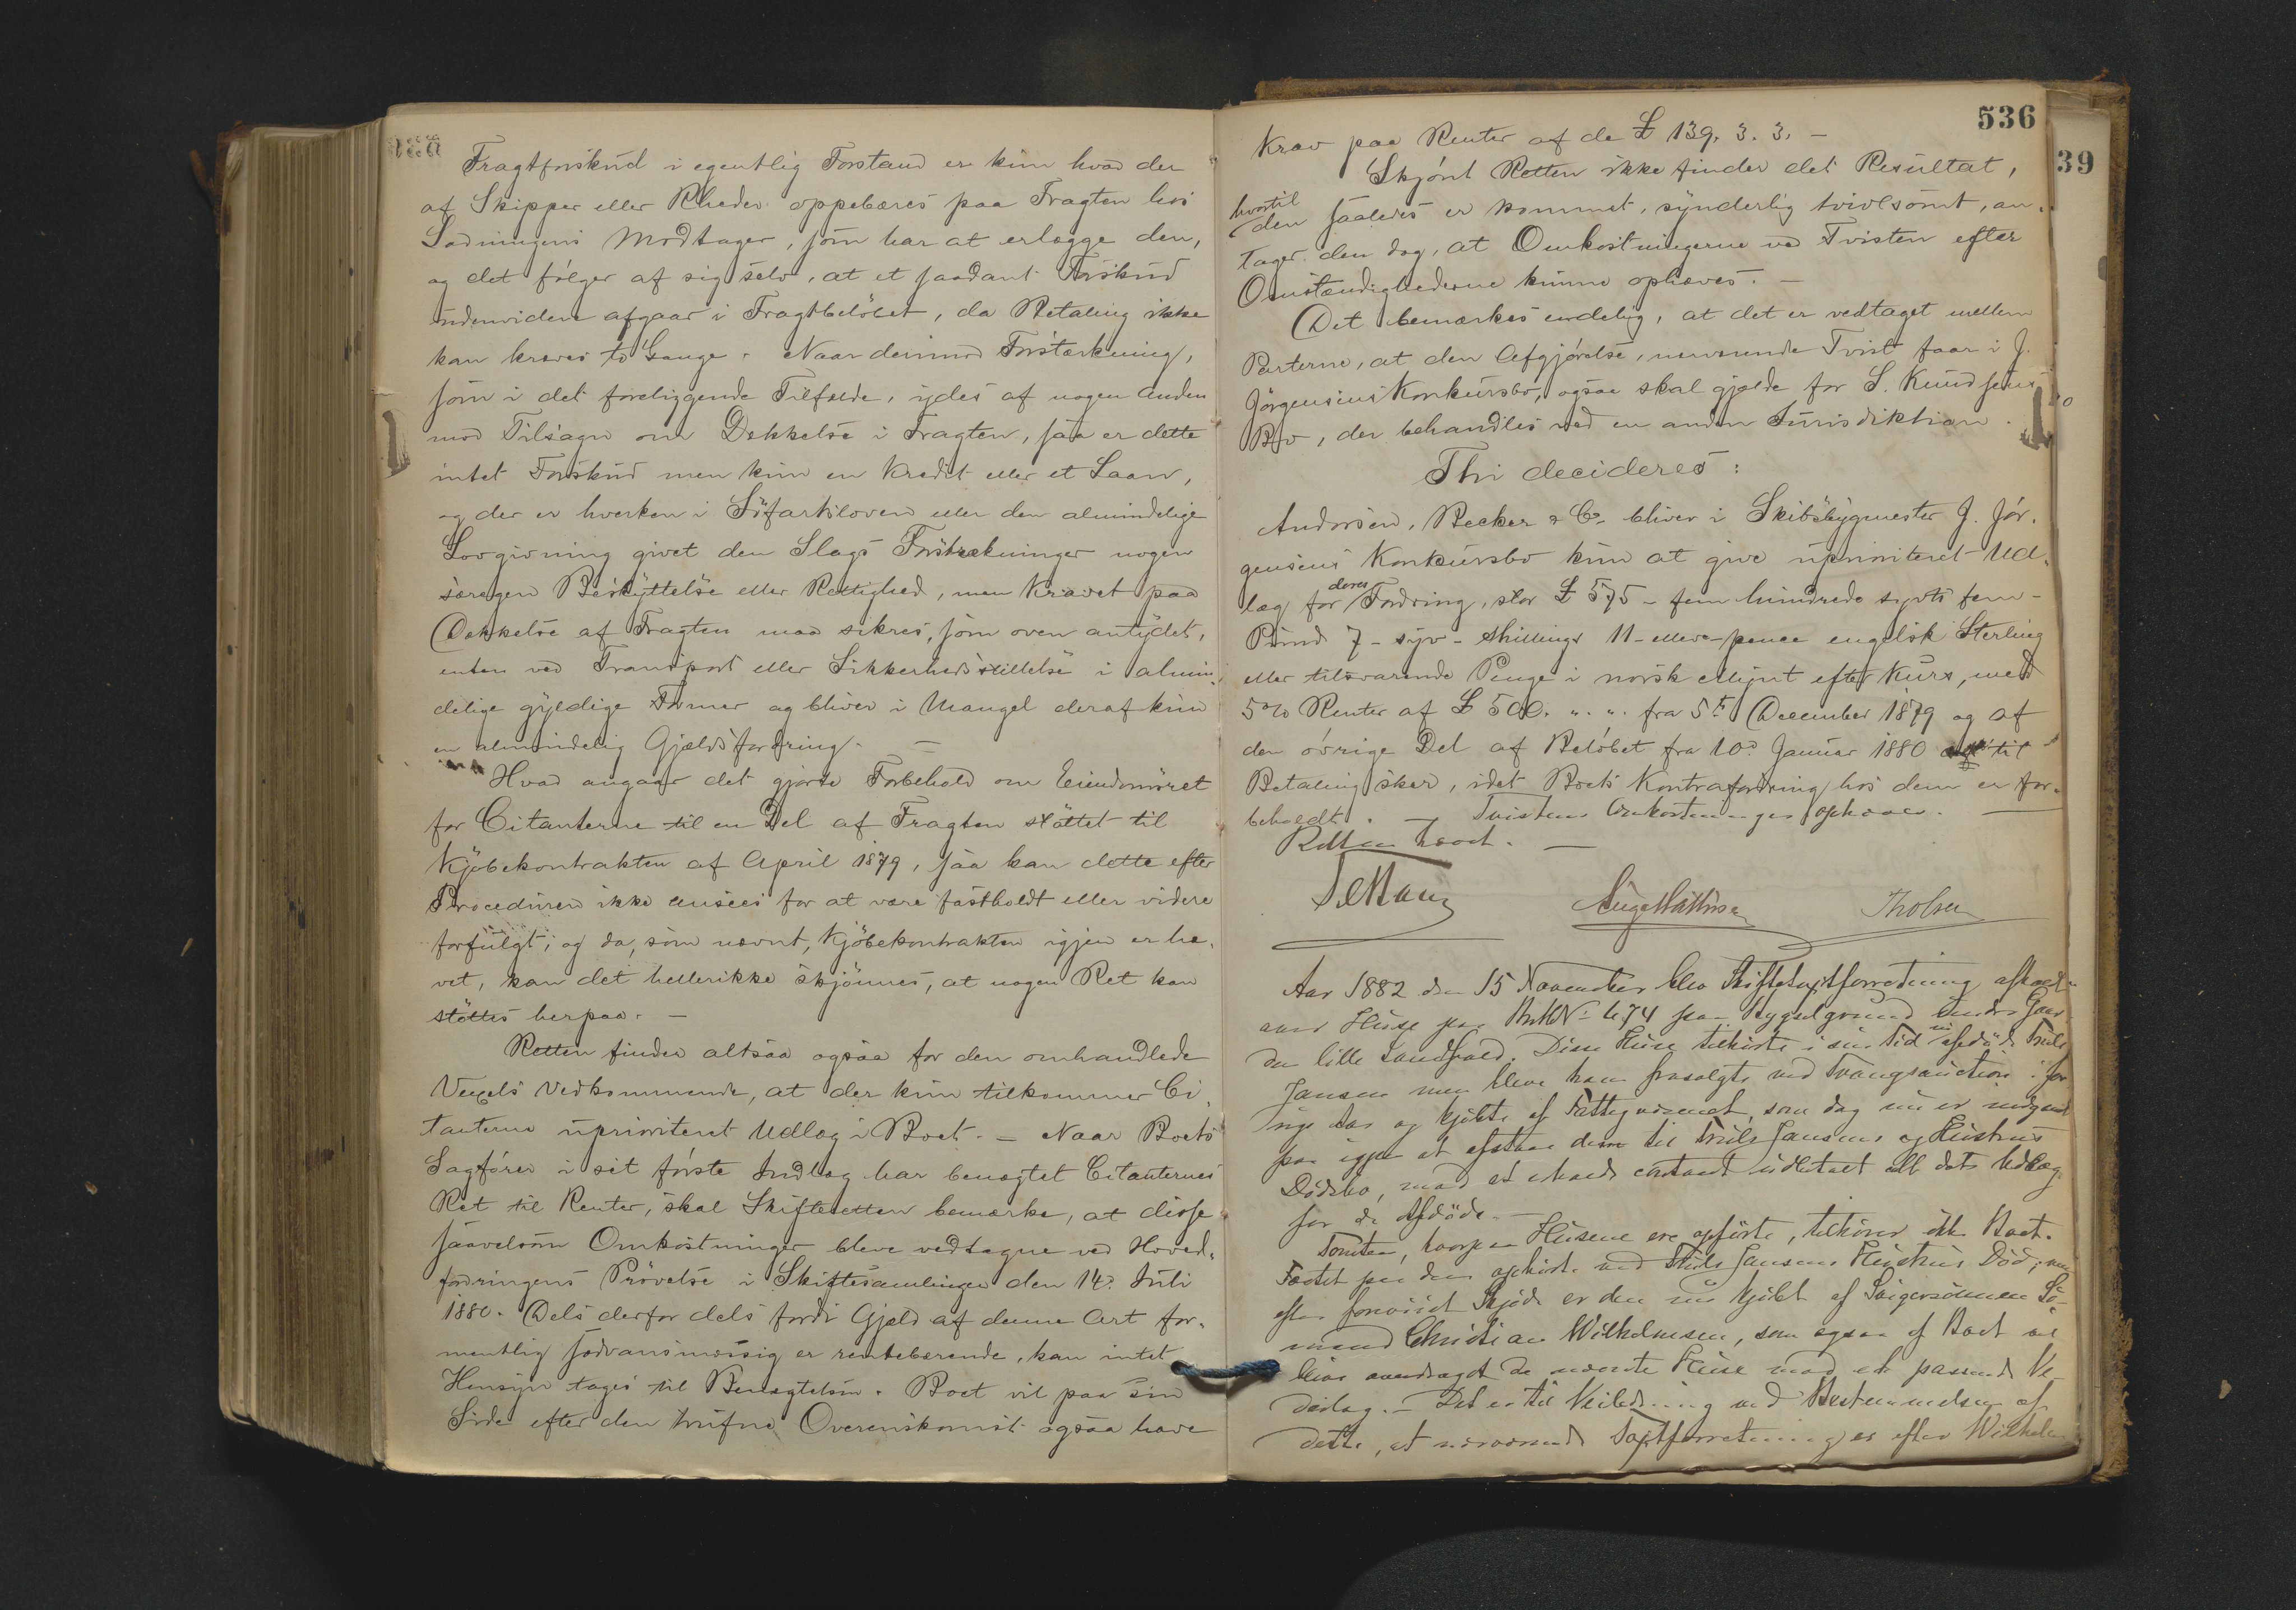 Fragtforskud i egentlig Forstand er kun hvad der
af Skipper eller Rheder oppebæres paa Fragten hos
Ladningens Modtager, som har at erlægge den,
og det følger af sig selv, at et saadant Forskud
udenvidere afgaar i Fragtbeløbet, da Betaling ikke
kan kræves to Gange. Naar derimod Forstærkning,
som i det foreliggende Tilfælde, ydes af nogen anden
mod Tilsagn om Dækkelse i Fragten, saa er dette
intet Forskud men kun en Kredit eller et Laan,
og der er hverken i Söfartsloven eller den almindelige
Lovgivning givet den Slags Forstrækninger nogen
særegen Beskyttelse eller Rettighed, men Kravet paa
Dækkelse af Fragten maa sikres, som oven antydet,
enten ved Transport eller Sikkerhedsstillelse i almin-
delige gyldige Former og bliver i Mangel deraf kun
en almindelig Gjældsfordring. —
Hvad angaar det gjorte Forbehold om Eiendomsret
for Citanterne til en Del af Fragten støttet til
Kjöbekontrakten af April 1879, saa kan dette efter
Proceduren ikke ansees for at være fastholdt eller videre
forfulgt; og da, som nævnt, Kjöbekontrakten igjen er hæ-
vet, kan det hellerikke skjönnes, at nogen Ret kan
støttes herpaa. —
Retten finder altsaa ogsaa for den omhandlede
Vexels Vedkommende, at der kun tilkommer Ci-
tanterne uprioriteret Udlæg i Boet. — Naar Boets
Sagfører i sit første Indlæg har benægtet Citanternes
Ret til Renter, skal Skifteretten bemærke, at disse
saavelsom Omkostninger bleve vedtagne ved Hoved-
fordringens Prövelse i Skiftesamlingen den 14de Juli
1880. Dels derfor dels fordi Gjæld af denne Art for-
mentlig sædvansmæssig er rentebærende, kan intet
Hensyn tages til Benægtelsen. Boet vil paa sin
Side efter den trufne Overenskomst ogsaa have
536
39
Krav paa Renter af de £ 139. 3. 3. —
Skjönt Retten ikke finder det Resultat,
hvortil
den saaledes er kommet, synderlig tvivlsomt, an-
tager den dog, at Omkostningerne ved Tvisten efter
Omstændighederne kunne ophæves. —
Det bemærkes endelig, at det er vedtaget mellem
Parterne, at den Afgjörelse, nærværende Tvist faar i J.
Jörgensens Konkursbo, ogsaa skal gjælde for S. Knudsens
Bo, der behandles ved en anden Jurisdiktion.
Thi decideres:
Andorsen, Becker & Co. bliver i Skibsbygmester J. Jör-
gensens Konkursbo kun at give uprioriteret Ud-
deres
læg for Fordring, stor £ 575 - fem hundrede sytti fem -
Pund 7 - syv - shillings 11 - elleve - pence engelsk Sterling
eller tilsvarende Penge i norsk Mynt efter Kurs, med
5% Renter af £ 500. „. „. fra 5te December 1879 og af
den övrige Del af Belöbet fra 10de Januar 1880 til
Betaling sker, idet Boets Kontrafordring hos dem er for-
beholdt. — Tvistens Omkostninger ophæves. —
Retten hævet. —
Aar 1882 den 15 November blev Skiftetaxtforretning afholdt
over Huse paa Mtr No 474 paa Bygselgrund under Gaar
den lille Sandfæd. Disse Huse tilhørte i sin Tid nu afdøde Truls
Jansen men bleve ham frasolgte ved Tvangsauction i for
rige Aar og kjöbte af Fattigvæsenet, som dog nu er indgaaet
paa igjen at afstaa dem til Truls Jansens og Hustrus
Dödsbo, mod at erholde contant udbetalt alt dets Udlæg
for de Afdöde. —
Tomten, hvorpaa Husene ere opförte, tilhörer ikke Boet.
Fæstet paa den ophörte ved Truls Jansens Hustrus Död, men
efter foreviist Skjöde er den nu kjöbt af Svigersönnen Sö-
mand Christian Wilhelmsen, som ogsaa af Boet vil
blive overdraget de nævnte Huse mod et passende Ve-
derlag. — Det er til Veiledning ved Bestemmelsen af
dette, at nærværende Taxtforretning er efter Wilhelm